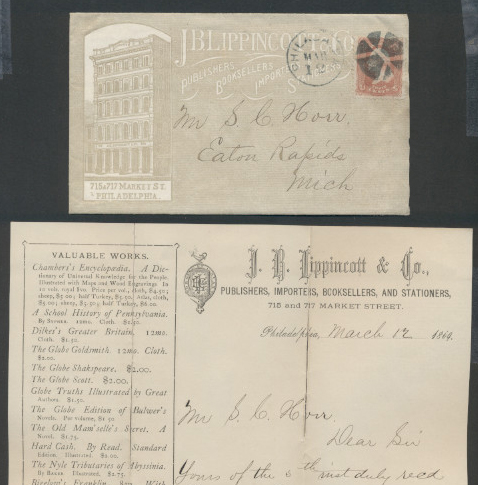 J.B. LIPPINCOTT & Co.
PUBLISHERS
BOOKSELLERS
715 & 717 MARKET ST.
PHILADELPHIA.
MAR
12
Mr S. C. Horr.
Eaton Rapids
Mich
VALUABLE WORKS.
Chambers's Encyclopædia. A Dic-
tionary of Universal Knowledge for the People.
Illustrated with Maps and Wood Engravings. In
10 vols. royal 8vo. Price per vol., cloth,
A School History of Pennsylvania.
12mo. Cloth.
Dilke's Greater Britain. 12mo.
Cloth.
The Globe Goldsmith 12mo. Cloth.
$2.00.
The Globe Shakspeare. $2.00.
The Globe Scott. $2.00.
Globe Truths Illustrated by Great
Authors. $1.50.
The Globe Edition of Bulwer's
Novels. Per volume, $1.50
The Old Mam'selle's Secret. A
Novel. $1.75.
Hard Cash. By Read. Standard
Edition. Illustrated. $2.00.
The Nyle Tributaries of Abyssinia.
By Baker. Illustrated. $2.75.
Bigelow's Franklin. With
J. B. Lippincott & Co.,
PUBLISHERS, IMPORTERS, BOOKSELLERS, AND STATIONERS,
715 and 717 MARKET STREET.
Philadelphia, March 12 1869.
Mr S. C. Horr
Dear Sir
Yours of the 8th inst duly recd